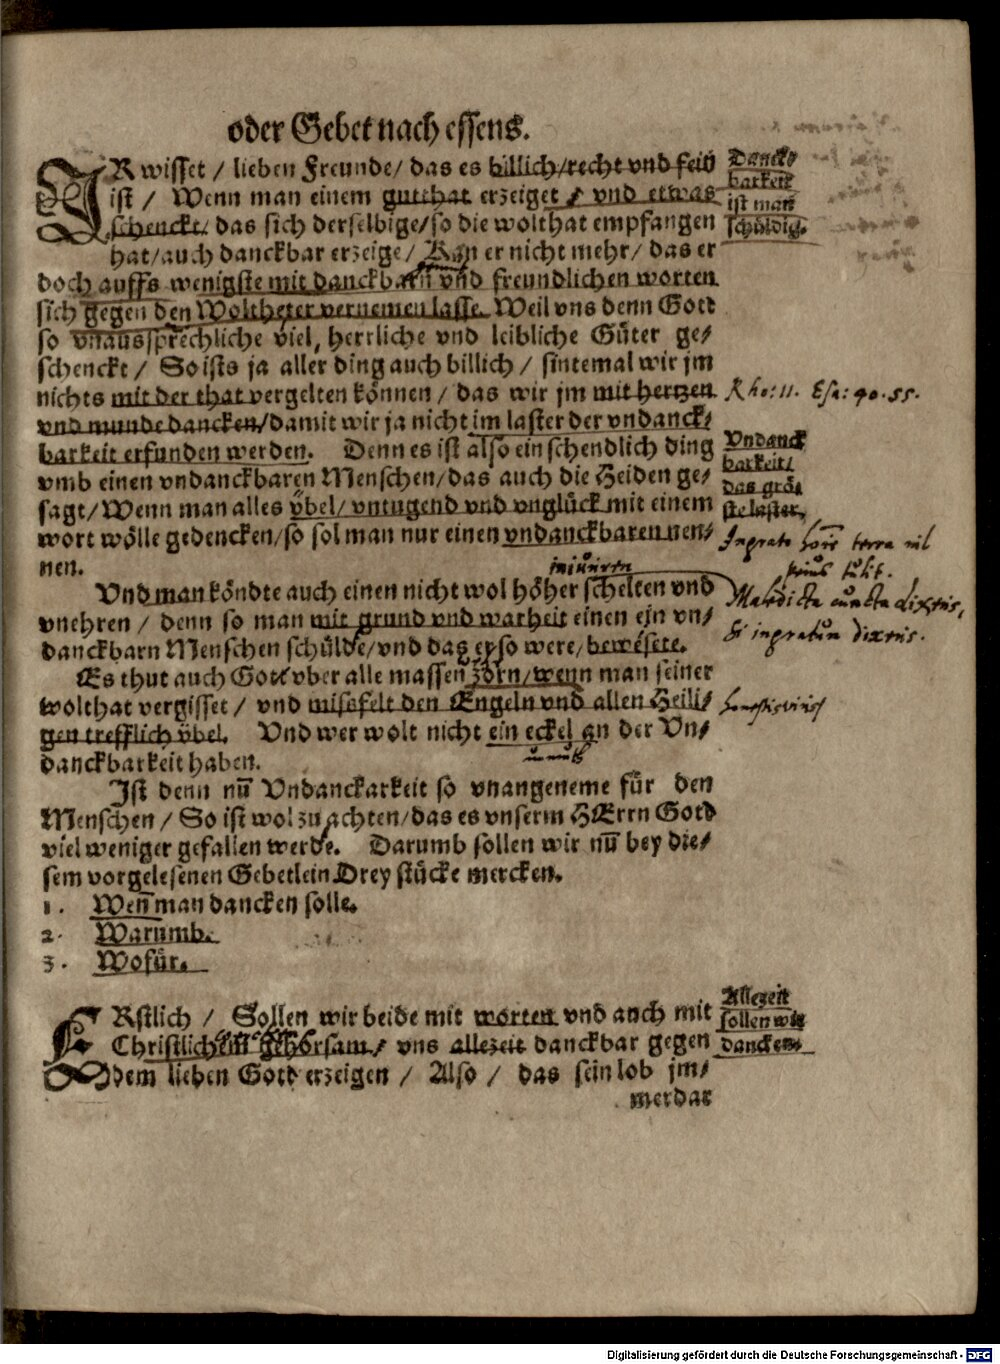 oder Gebet nach essens.
IR wisset / lieben Freunde / das es billich / recht vnd fein
ist / Wenn man einem gutthat erzeiget / vnd etwas
schenckt / das sich derselbige / so die wolthat empfangen
hat / auch danckbar erzeige / Kan er nicht mehr / das er
doch auffs wenigste mit danckbarn vnd freundlichen worten
sich gegen den Woltheter vernemen lasse. Weil vns denn Gott
so vnaussprechliche viel, herrliche vnd leibliche Güter ge/
schenckt / So ists ja aller ding auch billich / sintemal wir jm
nichts mit der that vergelten können / das wir jm mit hertzen
vnd munde dancken / damit wir ja nicht im laster der vndanck/
barkeit erfunden werden. Denn es ist also ein schendlich ding
vmb einen vndanckbaren Menschen / das auch die Heiden ge/
sagt / Wenn man alles ybel / vntugend vnd vnglück mit einem
wort wölle gedencken / so sol man nur einen vndanckbaren nen/
nen.
Vnd man köndte auch einen nicht wol höher schelten vnd
vnehren / denn so man mit grund vnd warheit einen ein vn/
danckbarn Menschen schülde / vnd das er so were / bewesete.
Es thut auch Gott vber alle massen zorn / wenn man seiner
wolthat vergisset / vnd misfelt den Engeln vnd allen Heili/
gen trefflich ybel. Vnd wer wolt nicht ein eckel an der Vn/
danckbarkeit haben.
Ist denn nu̅ Vndanckarkeit so vnangeneme für den
Menschen / So ist wol zu achten / das es vnserm HErrn Gott
viel weniger gefallen werde. Darumb sollen wir nu̅ bey die/
sem vorgelesenen Gebetlein Drey stücke mercken.
1. Wen̅ man dancken solle.
2. Warumb.
3. Wofür.
ERstlich / Sollen wir beide mit worten vnd auch mit
Christlichem gehorsam / vns allezeit danckbar gegen
dem lieben Gott erzeigen / Also / das sein lob jm/
merdar
Danck/
barkeit
ist man
schüldig.
Rho: 11. Esa: 40. 55.
Vndanck
barkeit /
das grö/
ste laster.
Ingrato terra nil
peius
Maledicta cuncta dixeris,
Si ingratum dixeris.
Allezeit
sollen wir
dancken.
Digitalisierung gefördert durch die Deutsche Forschungsgemeinschaft - DFG